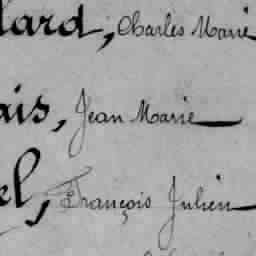 lard, Charles Marie
ais, Jean Marie
el, François Julien